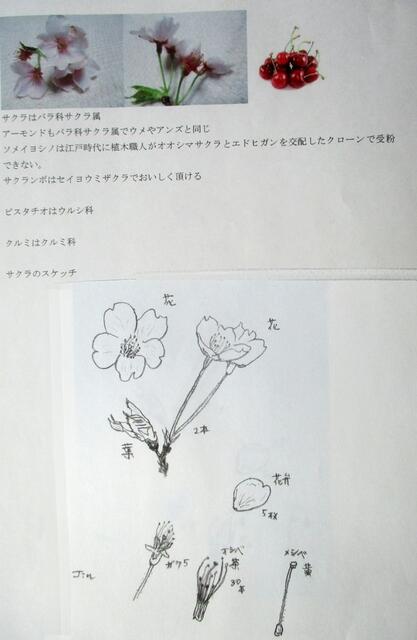 サクラはバラ科サクラ属
アーモンドもバラ科サクラ属でウメやアンズと同じ
ソメイヨシノは江戸時代に植木職人がオオシマサクラとエドヒガンを交配したクローンで受粉
できない。
サクランボはセイヨウミザクラでおいしく頂ける
ピスタチオはウルシ科
クルミはクルミ科
サクラのスケッチ
花
花
葉
2本
花弁
5枚
ガク5
オシベ
30本
メシベ